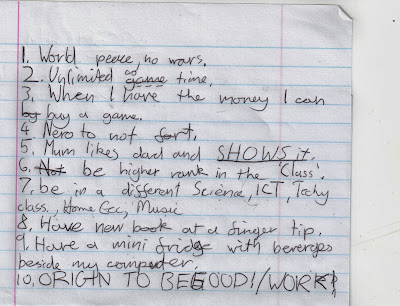 1. World peace, no wars.
2. Unlimited game time.
3. When I have the money I can
buy a game.
4 Nero to not fart.
5. Mum likes dad and SHOWS it.
6. Not be higher rank in the 'Class'.
7. be in a different Science, ICT, Techy
class. Home Ecc, Music
8. Have new book at a finger tip.
9. Have a mini fridge with beverges
beside my computer.
10. ORIGIN TO BE GOOD!/WORK!